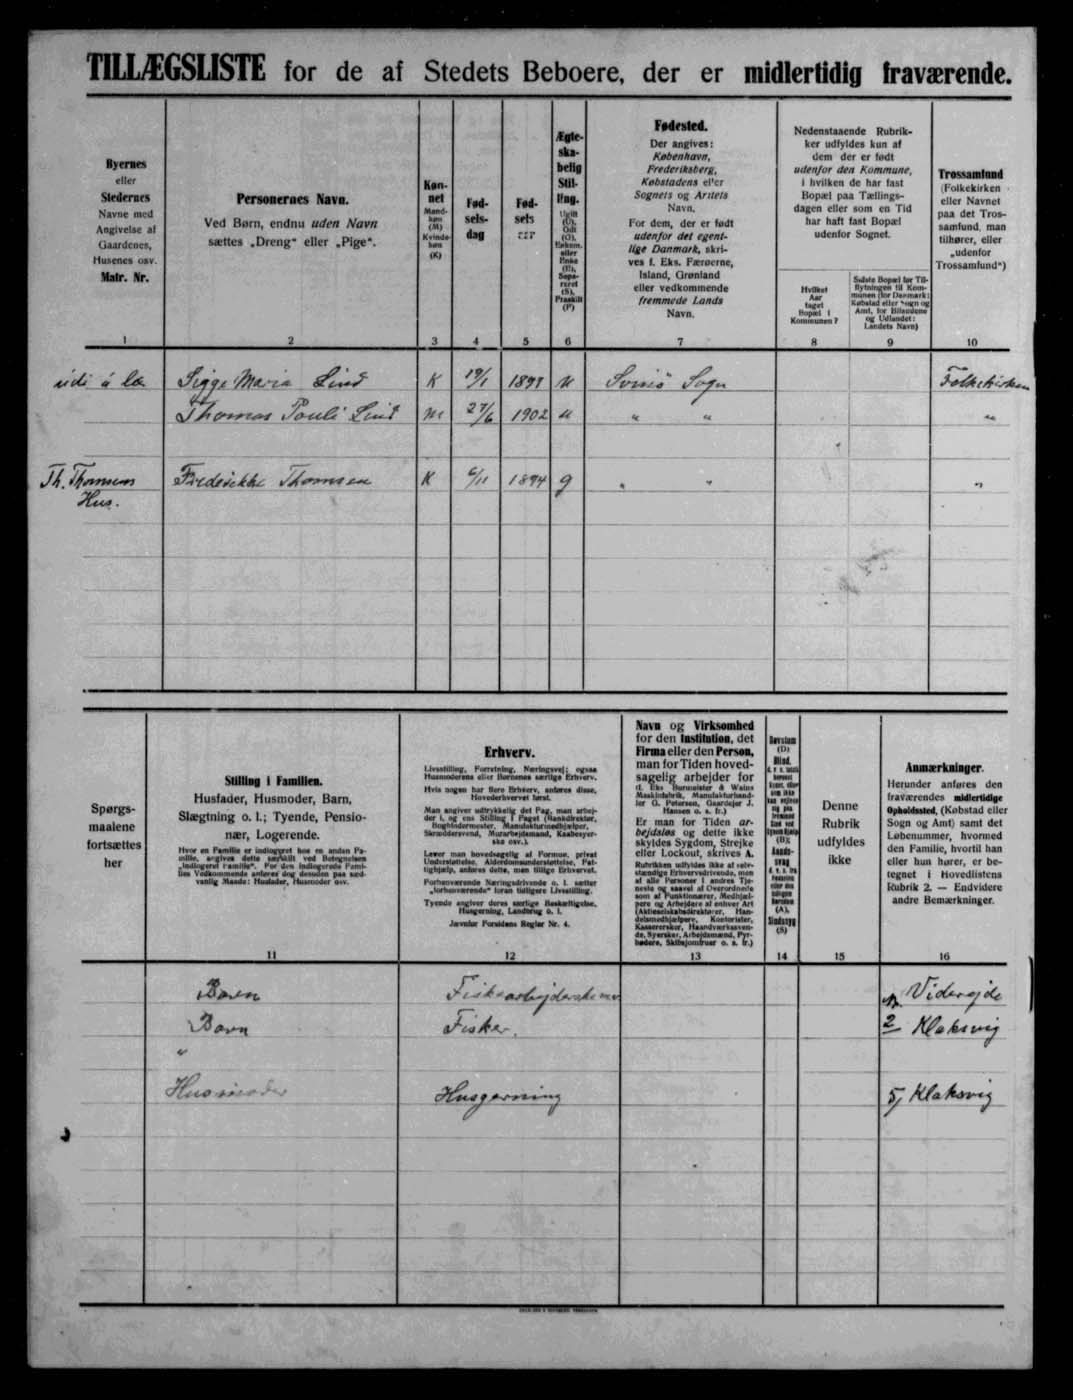 TILLÆGSLISTE for de af Stedets Beboere, der er midlertidig fraværende.
Byernes
eller
Stedernes
Navne med
Angivelse af
Gaardenes,
Husenes osv.
Matr. Nr.
Personernes Navn.
Ved Børn, endnu uden Navn
sættes „Dreng“ eller „Pige“.
Køn-
net
Mand-
køn
(M)
Kvinde-
køn
(K)
Fød-
sels-
dag
Fød-
sels
Ægte-
ska-
belig
Stil-
ling.
Ugift
(U),
Gift
(G),
Enkem.
eller
Enke
(E),
Sepa-
reret
(S),
Fraskilt
(F)
Fødested.
Der angives:
København,
Frederiksberg,
Købstadens eller
Sognets og Amtets
Navn.
For dem, der er født
udenfor det egent-
lige Danmark, skri-
ves f. Eks. Færøerne,
Island, Grønland
eller vedkommende
fremmede Lands
Navn.
Nedenstaaende Rubrik-
ker udfyldes kun af
dem der er født
udenfor den Kommune,
i hvilken de har fast
Bopæl paa Tællings-
dagen eller som en Tid
har haft fast Bopæl
udenfor Sognet.
Hvilket
Aar
taget
Bopæl i
Kommunen?
Sidste Bopæl før Til-
flytningen til Kom-
munen (for Danmark:
Købstad eller Sogn og
Amt, for Bilandene
og Udlandet:
Landets Navn)
Trossamfund
(Folkekirken
eller Navnet
paa det Tros-
samfund, man
tilhører, eller
„udenfor
Trossamfund“)
1 2 3 4 5 6 7 8 9 10
Sigga Maria Lind K 19/1 1898 U Svinø Sogn Folkekirken
Thomas Pauli Lind M 27/6 1902 U " " "
Th. Thomsens Frederikke Thomsen K 6/11 1894 g " " "
Hus.
Spørgs-
maalene
fortsættes
her
Stilling i Familien.
Husfader, Husmoder, Barn,
Slægtning o. l.; Tyende, Pensio-
nær, Logerende.
Hvor en Familie er indlogeret hos en anden Fa-
milie, angives dette særskilt ved Betegnelsen
„indlogeret Familie“. For den indlogerede Fami-
lies Vedkommende anføres dog desuden paa sæd-
vanlig Maade: Husfader, Husmoder osv.
Erhverv.
Livsstilling, Forretning, Næringsvej; ogsaa
Husmoderens eller Børnenes særlige Erhverv.
Hvis nogen har flere Erhverv, anføres disse,
Hovederhvervet først.
Man angiver udtrykkelig det Fag, man arbej-
der i, og ens Stilling i Faget (Bankdirektør,
Bogbindermester, Manufakturmedhjælper,
Skræddersvend, Murarbejdsmand, Kaabesyer-
ske osv.).
Lever man hovedsagelig af Formue, privat
Understøttelse, Alderdomsunderstøttelse, Fat-
tighjælp, anføres dette, men tillige Erhvervet.
Forhenværende Næringsdrivende o. l. sætter
„forhenværende“ foran tidligere Livsstilling.
Tyende angiver deres særlige Beskæftigelse,
Husgerning, Landbrug o. l.
Jævnfør Forsidens Regler Nr. 4.
Navn og Virksomhed
for den Institution, det
Firma eller den Person,
man for Tiden hoved-
sagelig arbejder for
(f. Eks Burmeister & Wains
Maskinfabrik, Manufakturhand-
ler O. Petersen, Gaardejer J.
Hansen o. s. fr.)
Er man for Tiden ar-
bejdsløs og dette ikke
skyldes Sygdom, Strejke
eller Lockout, skrives A.
Rubrikken udfyldes ikke af selv-
stændige Erhvervsdrivende, men
af alle Personer i andres Tje-
neste og saavel af Overordnede
som af Funktionærer, Medhjæl-
pere og Arbejdere af enhver Art
(Aktieselskabsdirektører, Han-
delsmedhjælpere, Kontorister,
Kassererskor, Haandværkssven-
de, Syersker, Arbejdsmænd, Fyr-
bødere, Skibsjomfruer o. s. fr.)
Døvstum
(D)
Blind.
(B);
Aands-
svag
(A),
Sindssyg
(S)
Denne
Rubrik
udfyldes
ikke
Anmærkninger.
Herunder anføres den
fraværendes midlertidige
Opholdssted, (Købstad eller
Sogn og Amt) samt det
Løbenummer, hvormed
den Familie, hvortil han
eller hun hører, er be-
tegnet i Hovedlistens
Rubrik 2. — Endvidere
andre Bemærkninger.
11 12 13 14 15 16
Barn Viderejde
Barn Fisker. 2 Klaksvig
"
Husmoder Husgerning 5, Klaksvig